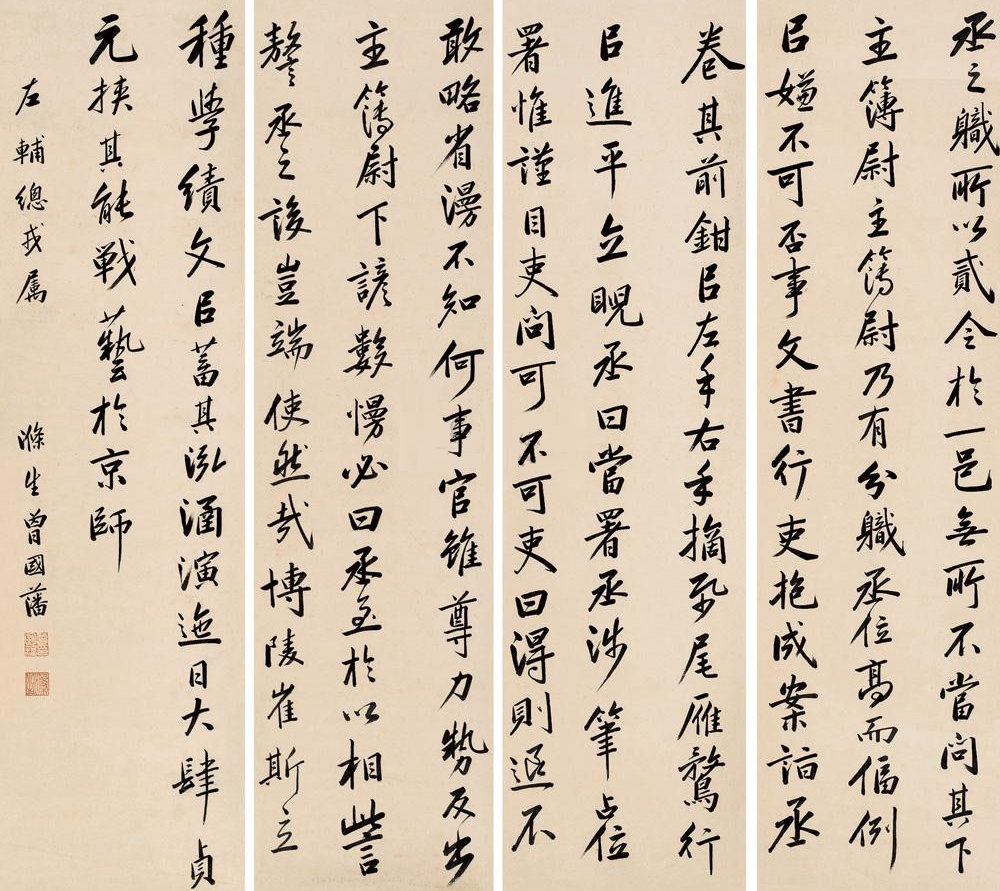 丞之職所以貳令於一邑無所不當問其下
主簿尉主簿尉乃有分職丞位高而偪例
㠯嫌不可否事文書行吏抱成案詣丞
卷其前鉗㠯左手右手摘紙尾雁鶩行
㠯進平立睨丞曰當署丞涉筆占位
署惟謹目吏問可不可吏曰得則退不
敢略省漫不知何事官雖尊力勢反出
主簿尉下諺數慢必曰丞至於以相訾
謷丞之設豈端使然哉博陵崔斯立
種學績文㠯蓄其泓涵演迤日大肆貞
元挾其能戰藝於京師
左輔總戎属
滌生曾國藩